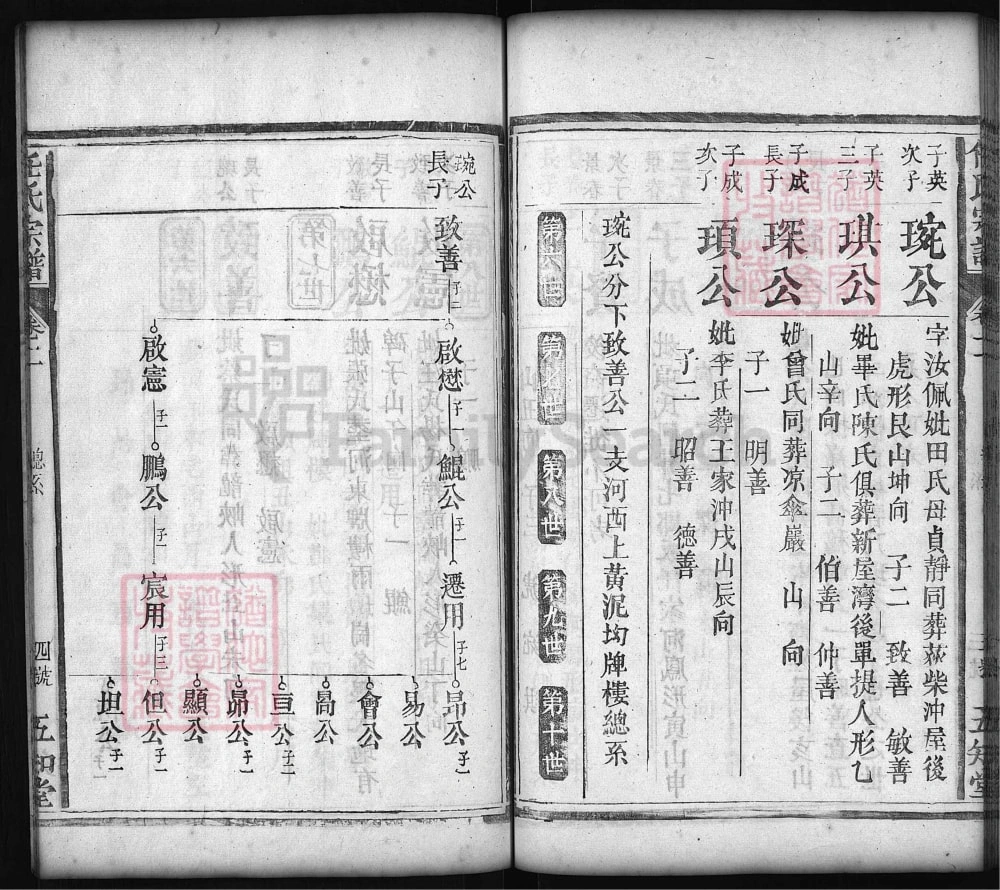 任氏宗譜
卷二
五知堂
子英
次子
琬公
字汝佩妣田氏母貞靜同葬荻柴沖屋後
虎形艮山坤向 子二 致善 敏善
子英
三子
琪公
妣畢氏陳氏俱葬新屋灣後單提人形乙
山辛向 子二 伯善 仲善
子成
長子
琛公
妣曾氏同葬凉傘巖 山 向
子一 明善
子成
次子
頊公
妣李氏葬王家沖戌山辰向
子二 昭善 德善
琬公分下致善公一支河西上黃泥坳牌樓總系
第六世 第七世 第八世 第九世 第十世
琬公
長子
致善 子二
啟懋 子一 鯤公 子一 遷用 子七
昂公 子一
易公
會公
咼公
亘公 子一
昴公 子一
顯公
啟憲 子一 鵬公 子一 宸用 子三
但公 子一
坦公 子一
任氏宗譜
卷二
總系
四號
五知堂
FamilySearch